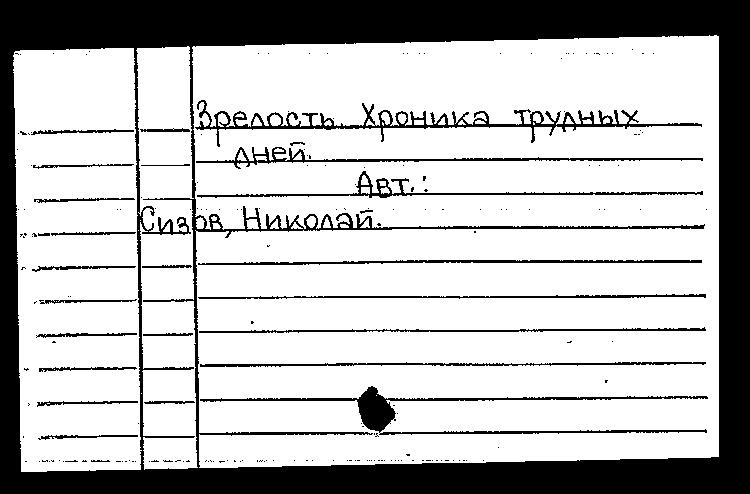 Зрелость. Хроника трудных
дней.
Авт.:
Сизов, Николай.